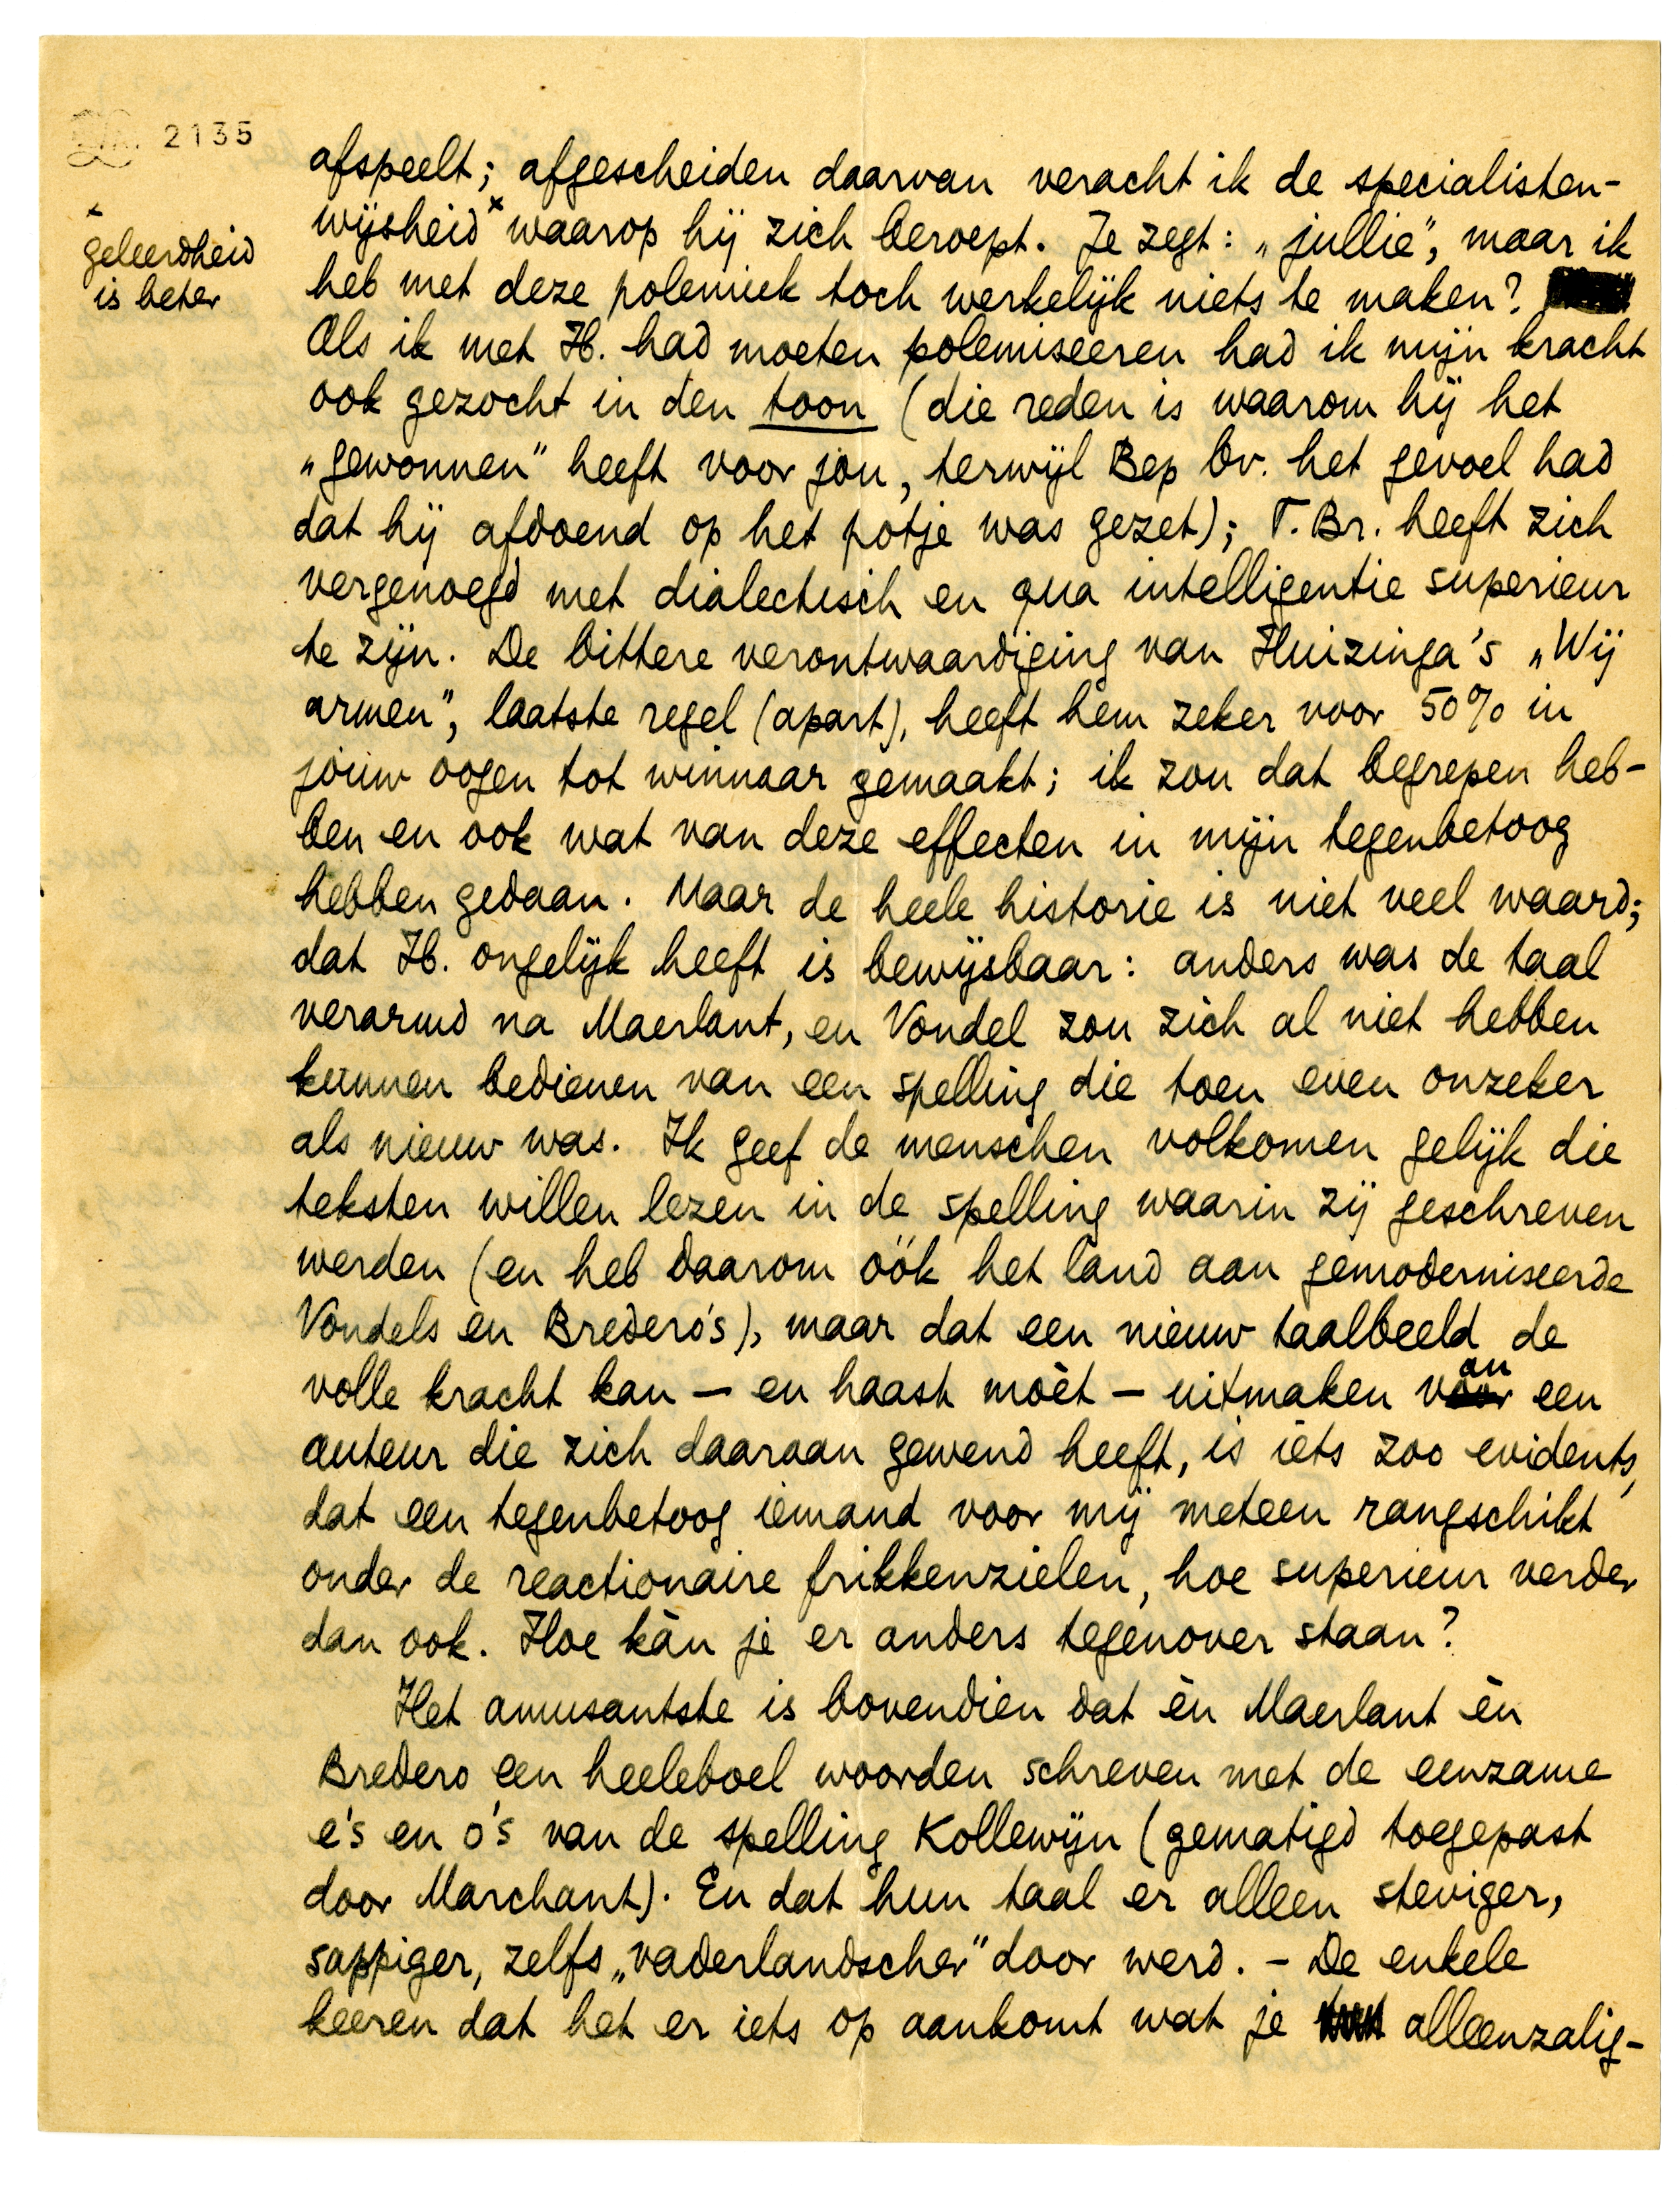 2135
afspeelt; afgescheiden daarvan veracht ik de specialisten-
wijsheid x waarop hij zich beroept. Je zegt: „jullie", maar ik
x
geleerdheid
is beter
heb met deze polemiek toch werkelijk niets te maken?
Als ik met H. had moeten polemiseeren had ik mijn kracht
ook gezocht in den toon (die reden is waarom hij het
„gewonnen" heeft voor jou, terwijl Bep Br. het gevoel had
dat hij afdoend op het potje was gezet); T. Br. heeft zich
vergenoegd met dialectisch en qua intelligentie superieur
te zijn. De bittere verontwaardiging van Huizinga's „Wij
armen", laatste regel (apart), heeft hem zeker voor 50% in
jouw oogen tot winnaar gemaakt; ik zou dat begrepen heb-
ben en ook wat van deze effecten in mijn tegenbetoog
hebben gedaan. Maar de heele historie is niet veel waard;
dat H. ongelijk heeft is bewijsbaar: anders was de taal
verarmd na Maerlant, en Vondel zou zich al niet hebben
kunnen bedienen van een spelling die toen even onzeker
als nieuw was. Ik geef de menschen volkomen gelijk die
teksten willen lezen in de spelling waarin zij geschreven
werden (en heb daarom óók het land aan gemoderniseerde
Vondels en Bredero's), maar dat een nieuw taalbeeld de
volle kracht kan — en haast mòèt — uitmaken van een
auteur die zich daaraan gewend heeft, is iets zoo evidents,
dat een tegenbetoog iemand voor mij meteen rangschikt
onder de reactionaire frikkenzielen, hoe superieur verder
dan ook. Hoe kàn je er anders tegenover staan?
Het amusantste is bovendien dat èn Maerlant èn
Bredero een heeleboel woorden schreven met de eenzame
e's en o's van de spelling Kollewijn (gematigd toegepast
door Marchant). En dat hun taal er alleen steviger,
sappiger, zelfs „vaderlandscher" door werd. – De enkele
keeren dat het er iets op aankomt wat je alleenzalig-